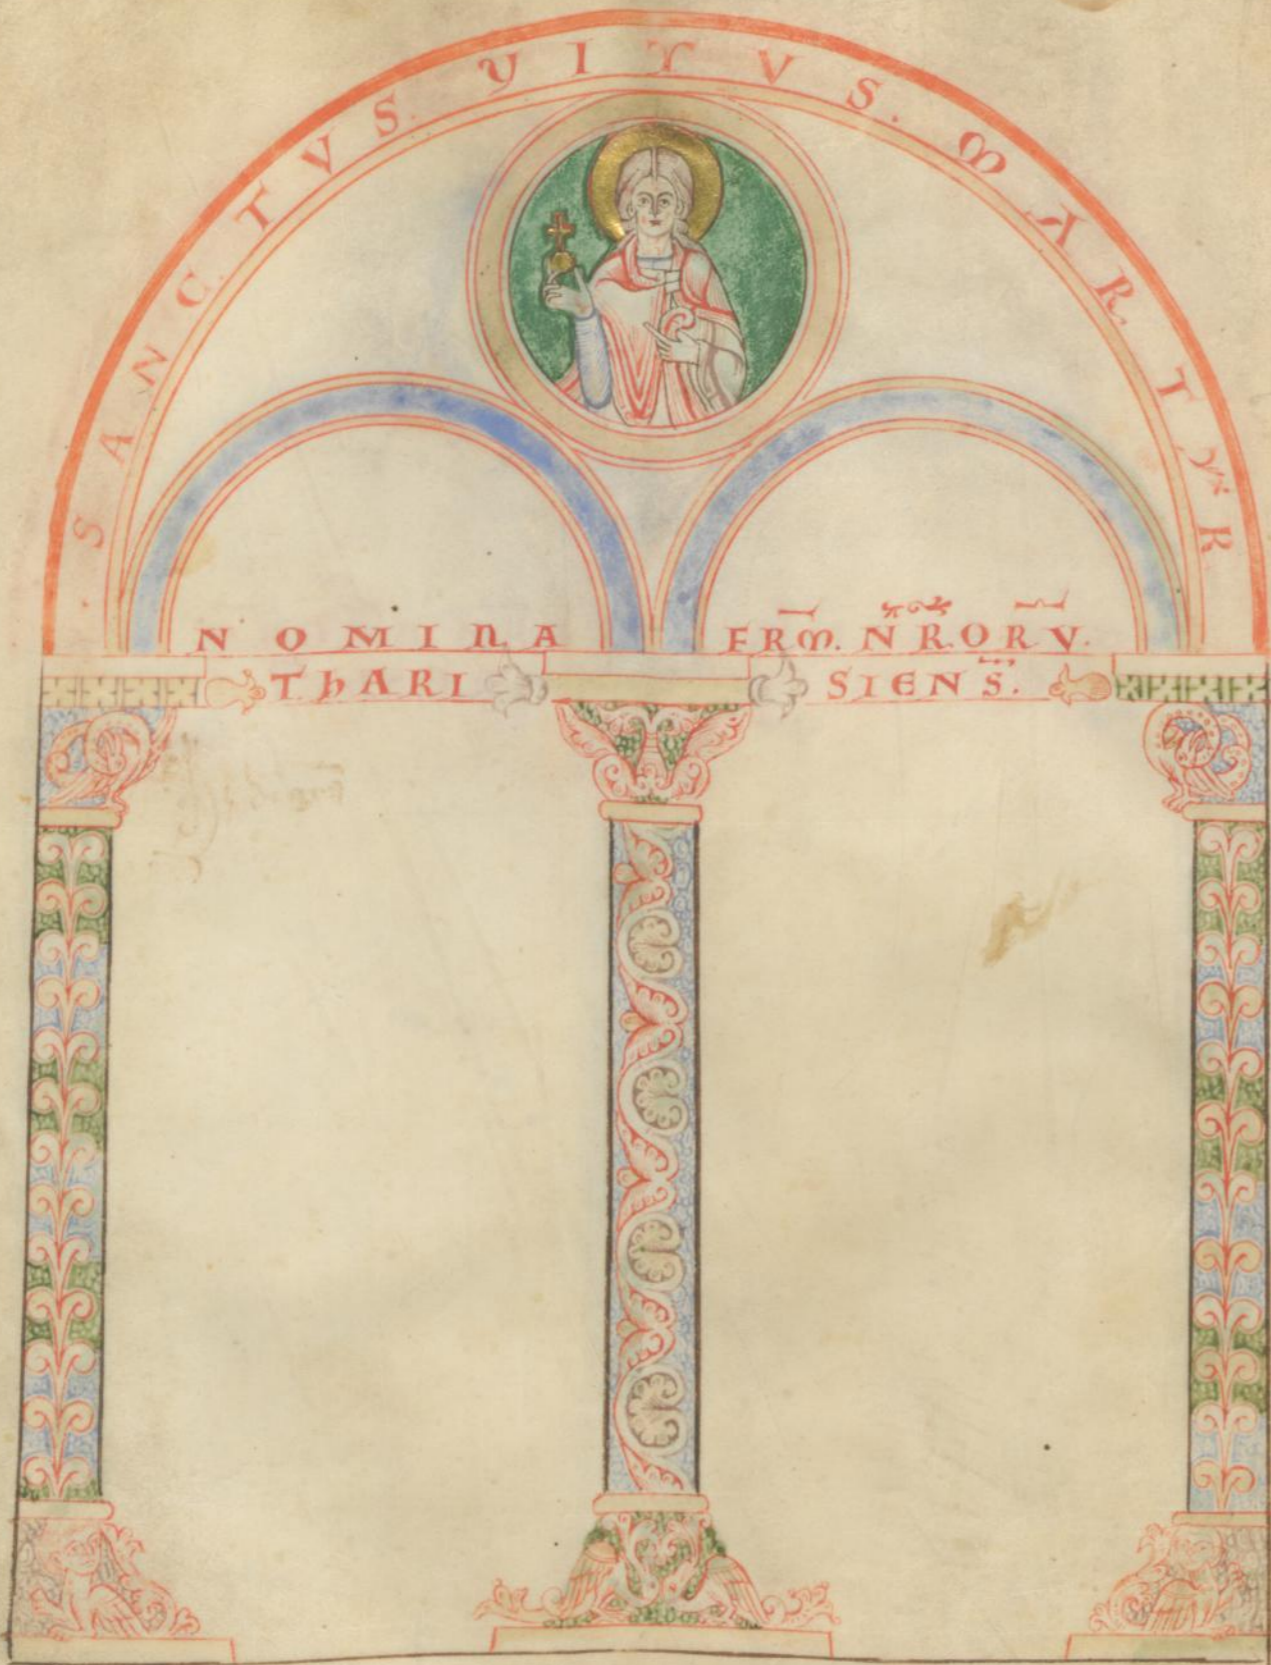 . SANCTVS. VITVS. MARTYR
NOMINA FRM̅. N̅R̅.ORV̅.
THARISIENS̅.